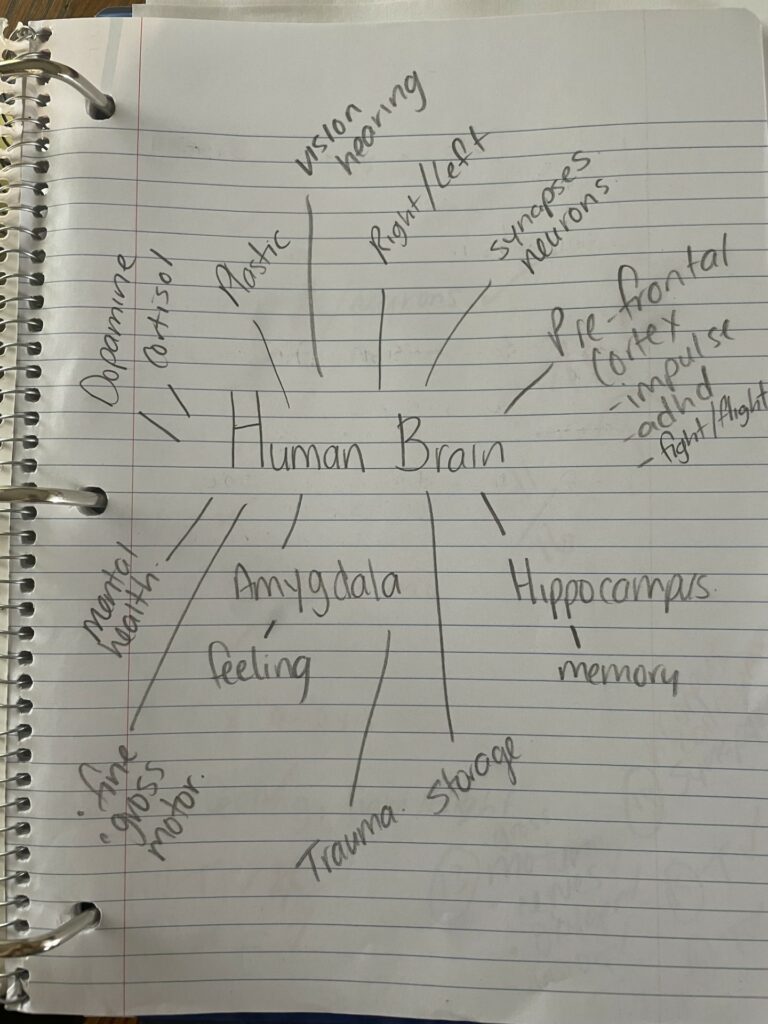 vision
hearing
Right/Left
synapses
neurons
Plastic
Dopamine
Cortisol
Pre-frontal
Cortex
- impulse
- adhd
- fight/flight
Human Brain
Mental
health.
Amygdala
feeling
Hippocampus.
memory
fine
gross
motor.
Trauma.
Storage